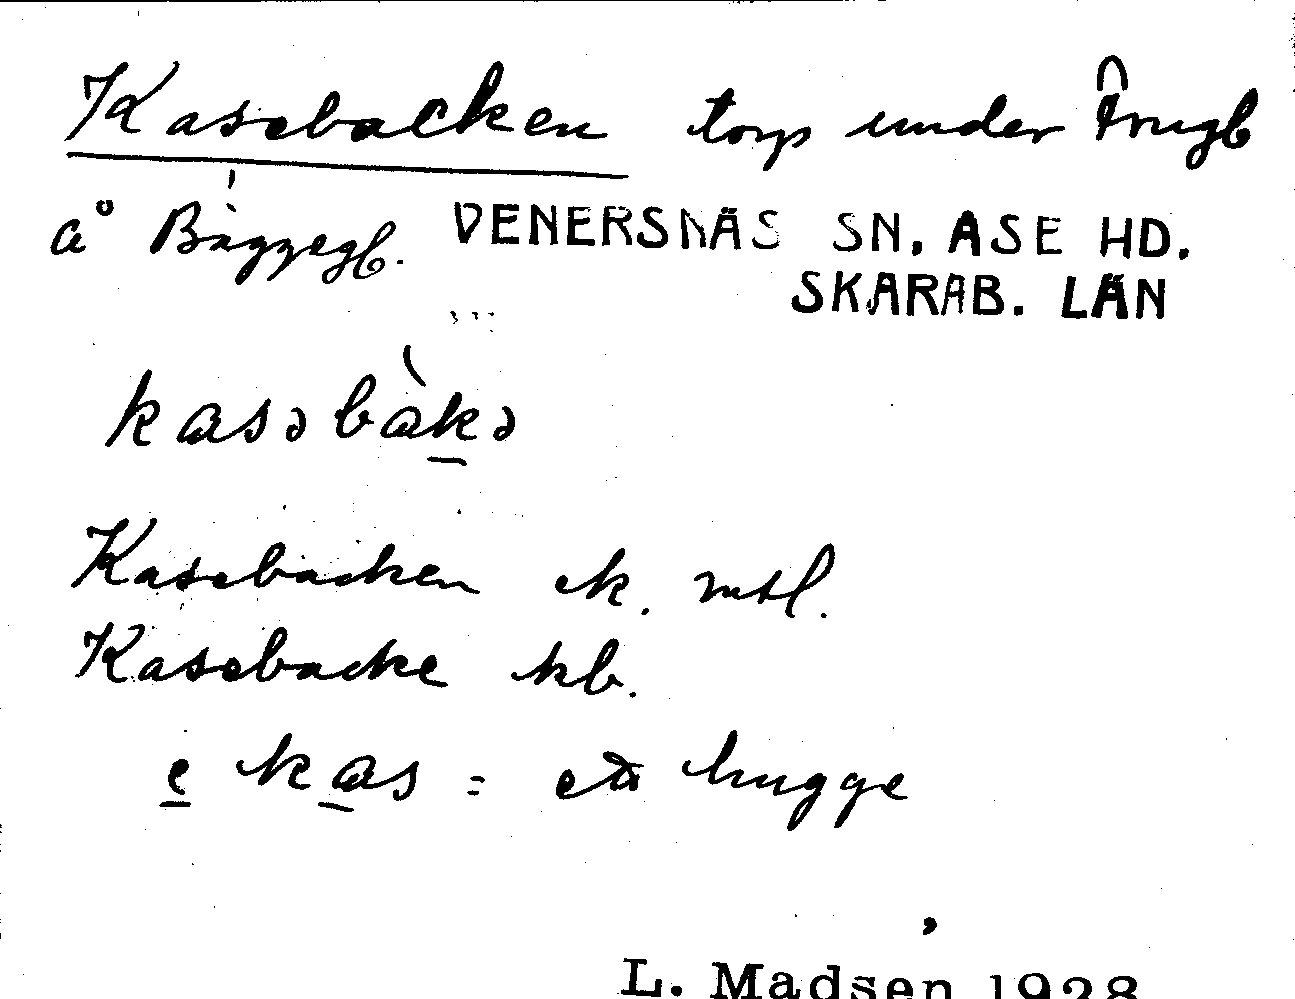 Kasebacken torp under Frugb
å Byggegb. VENERSNÄS SN. ASE HD.
SKARAB. LÄN
kasəbàkə
Kasebacken ek. mtl.
Kasebacke kb.
e kas = ett hugge
L. Madsen 1928